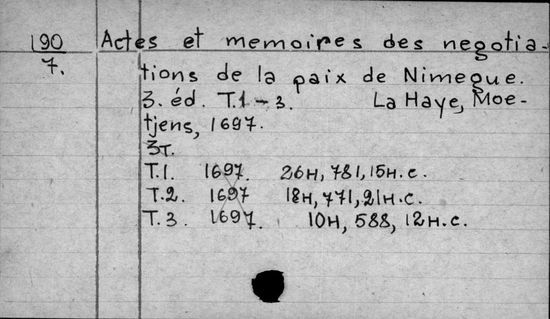 190 Actes et memoires des negotia-
7. tions de la paix de Nimegue.
3. éd. T.1-3. La Haye, Moe-
tjens, 1697.
3т.
T.1. 1697. 26н, 781, 15н.с.
T.2. 1697 18н, 771, 21н.с.
T.3. 1697. 10н, 588, 12н.с.